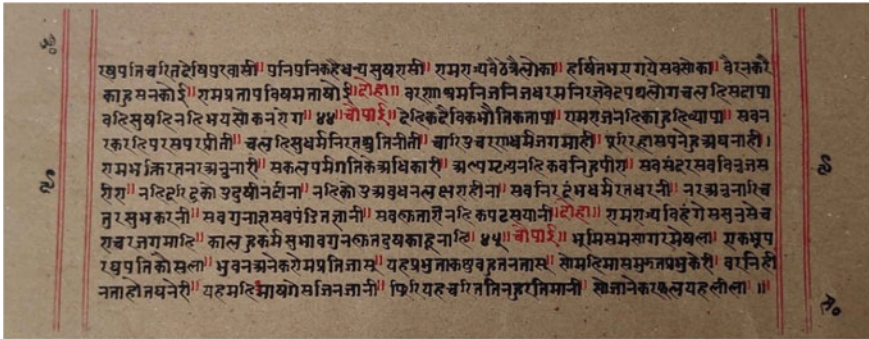 रघुपतिचरितदेषिपुरवासी॥ पुनिपुनिकहैधन्यसुषरासी॥ रामराज्यवैठेत्रैलोका॥ हर्षितभएगयेसवसोका॥ वैरनकरै
काहुसनकोई॥ रामप्रतापविषमताषोई॥ दोहा॥ वरणाश्रमनिजनिजधरमनिरतवेदपथलोगचलहिसदापा
वहिसुषहिनहिभयसोकनरोग॥ ४४॥ चौपाई॥ दैहिकदैविकभौतिकतापा॥ रामराजनहिकाहुहिव्यापा॥ सवन
रकरहिपरसपरप्रीती॥ चलहिसुधर्मनिरतश्रुतिनीती॥ चारिउचरणधर्मजगमाही॥ पूरिरहासपनेहुअघनाही।
रामभक्तिरतनरअरुनारी॥ सकलपर्मगतिकेअधिकारी॥ अल्पमृत्युनहिकवनिहुपीरा॥ सवसुंदरसवविरुजस
रीरा॥ नहिदरिद्रकोउदुषीनदीना॥ नहिकोउअवुधनलक्षणहीना॥ सवनिरदंभधर्मरतधरनी॥ नरअरुनारिच
तुरसुभकरनी॥ सवगुनज्ञसवपंडितज्ञानी॥ सवकृतज्ञनहिकपटसयानी॥ दोहा॥ रामराज्यविहंगेससुनुसच
राचरजगमाहि॥ कालहुकर्मसुभावगुनकृतदुषकाहुनाहि॥ ४५॥ चौपाई॥ भूमिसप्तसागरमेषला॥ एकभूप
रघुपतिकोसला॥ भुवनअनेकरोमप्रतिजासू॥ यहप्रभुताकछुवहुतनतासू॥ सोमहिमासमुझतप्रभुकेरी॥ वरनिही
नताहोतघनेरी॥ यहमहिमाषगेसजिनजानी॥ फिरियहचरिततिनहुरतिमानी॥ सोजानेकरफलयहलीला॥॥